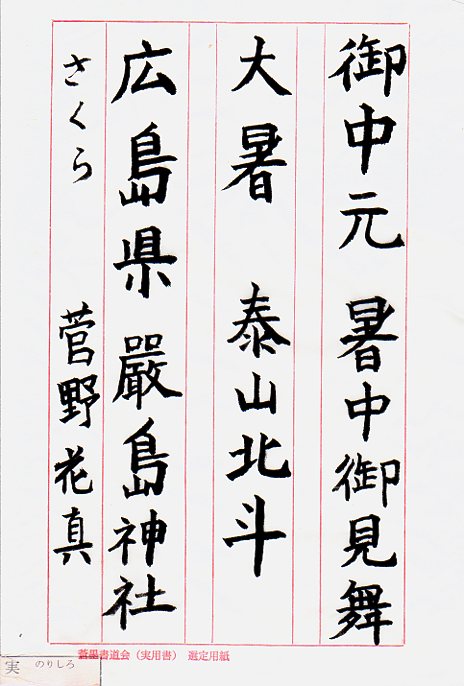 御中元 暑中御見舞
大暑 泰山北斗
広島県 嚴島神社
さくら 菅野花真
蒼墨書道会(実用書) 選定用紙
実 のりしろ